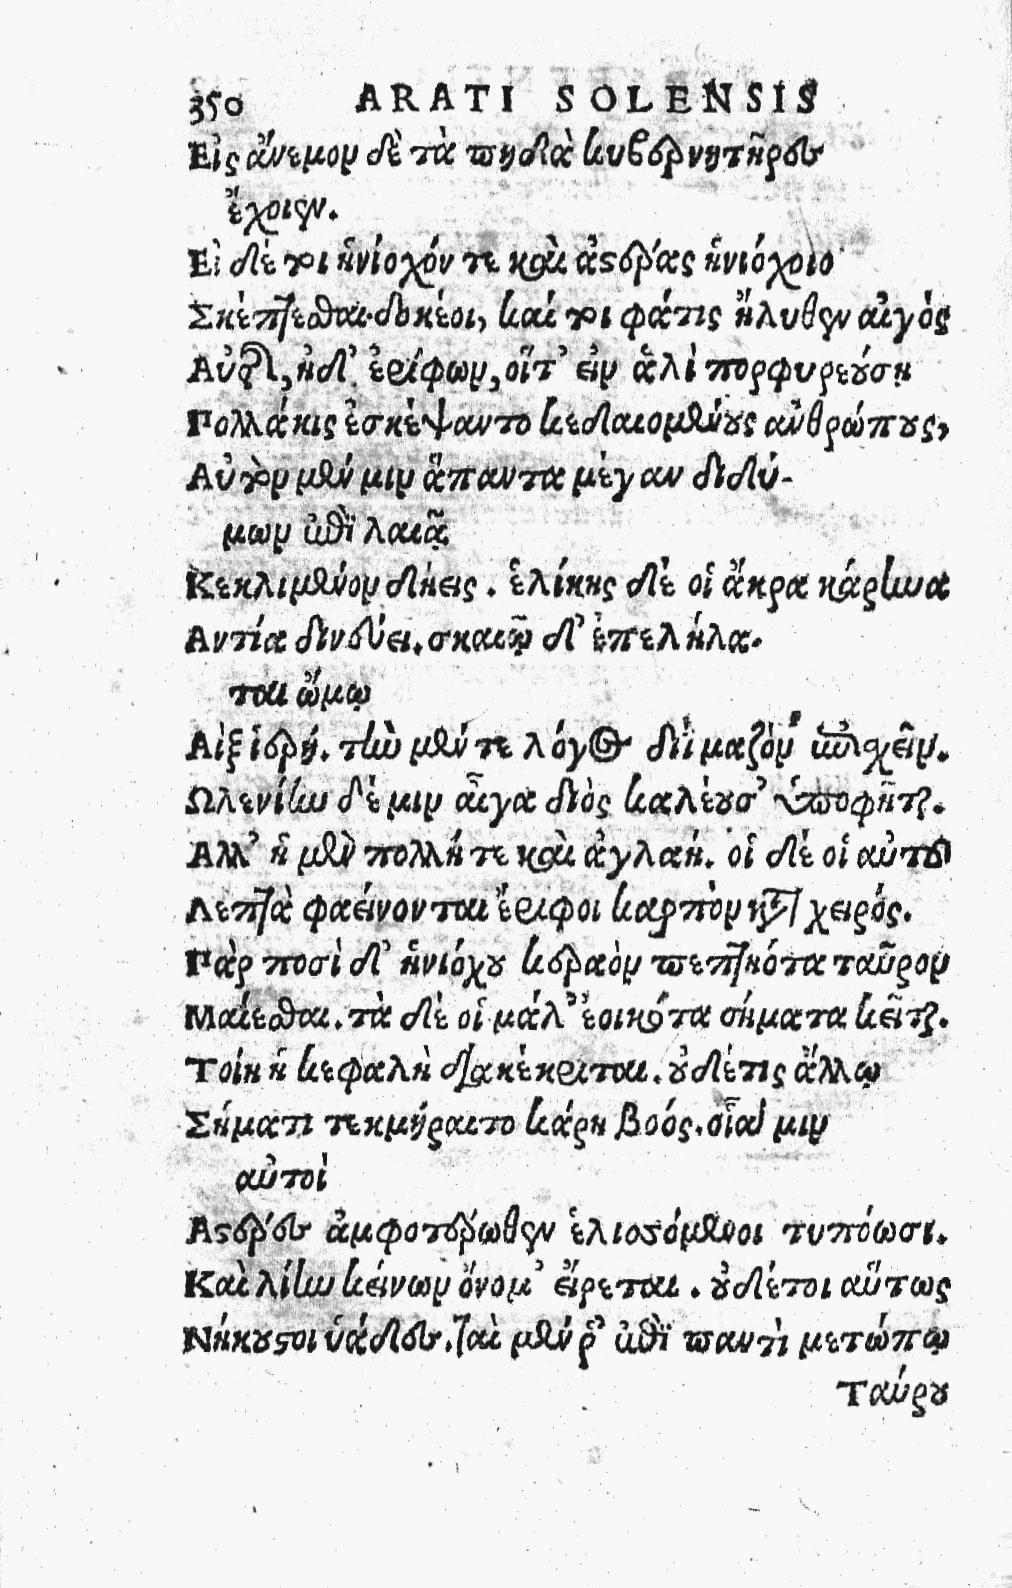 350 ARATI SOLENSIS
Εἰς ἄνεμον δὲ τὰ πηδὰ κυβερνητῆρες
ἔχοιεν.
Εἰ δέ τοι ἡνίοχόν τε καὶ ἀστέρας ἡνιόχοιο
Σκέπτεσθαι δοκέοι, καί τοι φάτις ἤλυθεν αἰγὸς
Αὐτῆς, ἠδ' ἐρίφων, οἵτ' εἰν ἁλὶ πορφυρεούσῃ
Πολλάκις ἐσκέψαντο κεδαιομένους ἀνθρώπους,
Αὐτὸν μέν μιν ἅπαντα μέγαν διδύ-
μων ἐπὶ λαιᾷ
Κεκλιμένον δήεις. ἑλίκης δέ οἱ ἄκρα κάρηνα
Αντία δινεύει. σκαιῷ δ' ἐπελήλα-
ται ὤμῳ
Αἲξ ἱερή. τὴν μέν τε λόγος διὶ μαζὸν ἐπισχεῖν.
Ωλενίην δέ μιν αἶγα διὸς καλέουσ' ὑποφῆται.
Αλλ' ἡ μὲν πολλή τε καὶ ἀγλαή. οἱ δέ οἱ αὐτοῦ
Λεπτὰ φαείνονται ἔριφοι καρπὸν κατὰ χειρός.
Πὰρ ποσὶ δ' ἡνιόχου κεραὸν πεπτηότα ταῦρον
Μαίεσθαι. τὰ δέ οἱ μάλ' ἐοικότα σήματα κεῖται.
Τοίη ἡ κεφαλὴ διακέκριται. οὐδέ τις ἄλλῳ
Σήματι τεκμήραιτο κάρη βοός. οἷα μιν
αὐτοὶ
Αστέρες ἀμφοτέρωθεν ἑλισσόμενοι τυπόωσι.
Καὶ λίην κείνων ὄνομ' εἴρεται. οὐδέ τοι αὕτως
Νήκουστοι ὑάδες. ταὶ μέν ῥ' ἐπὶ παντὶ μετώπῳ
Ταύρου